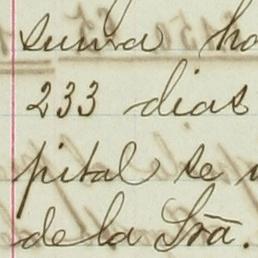 suma ha
233 dias
pital se
de la Sra.